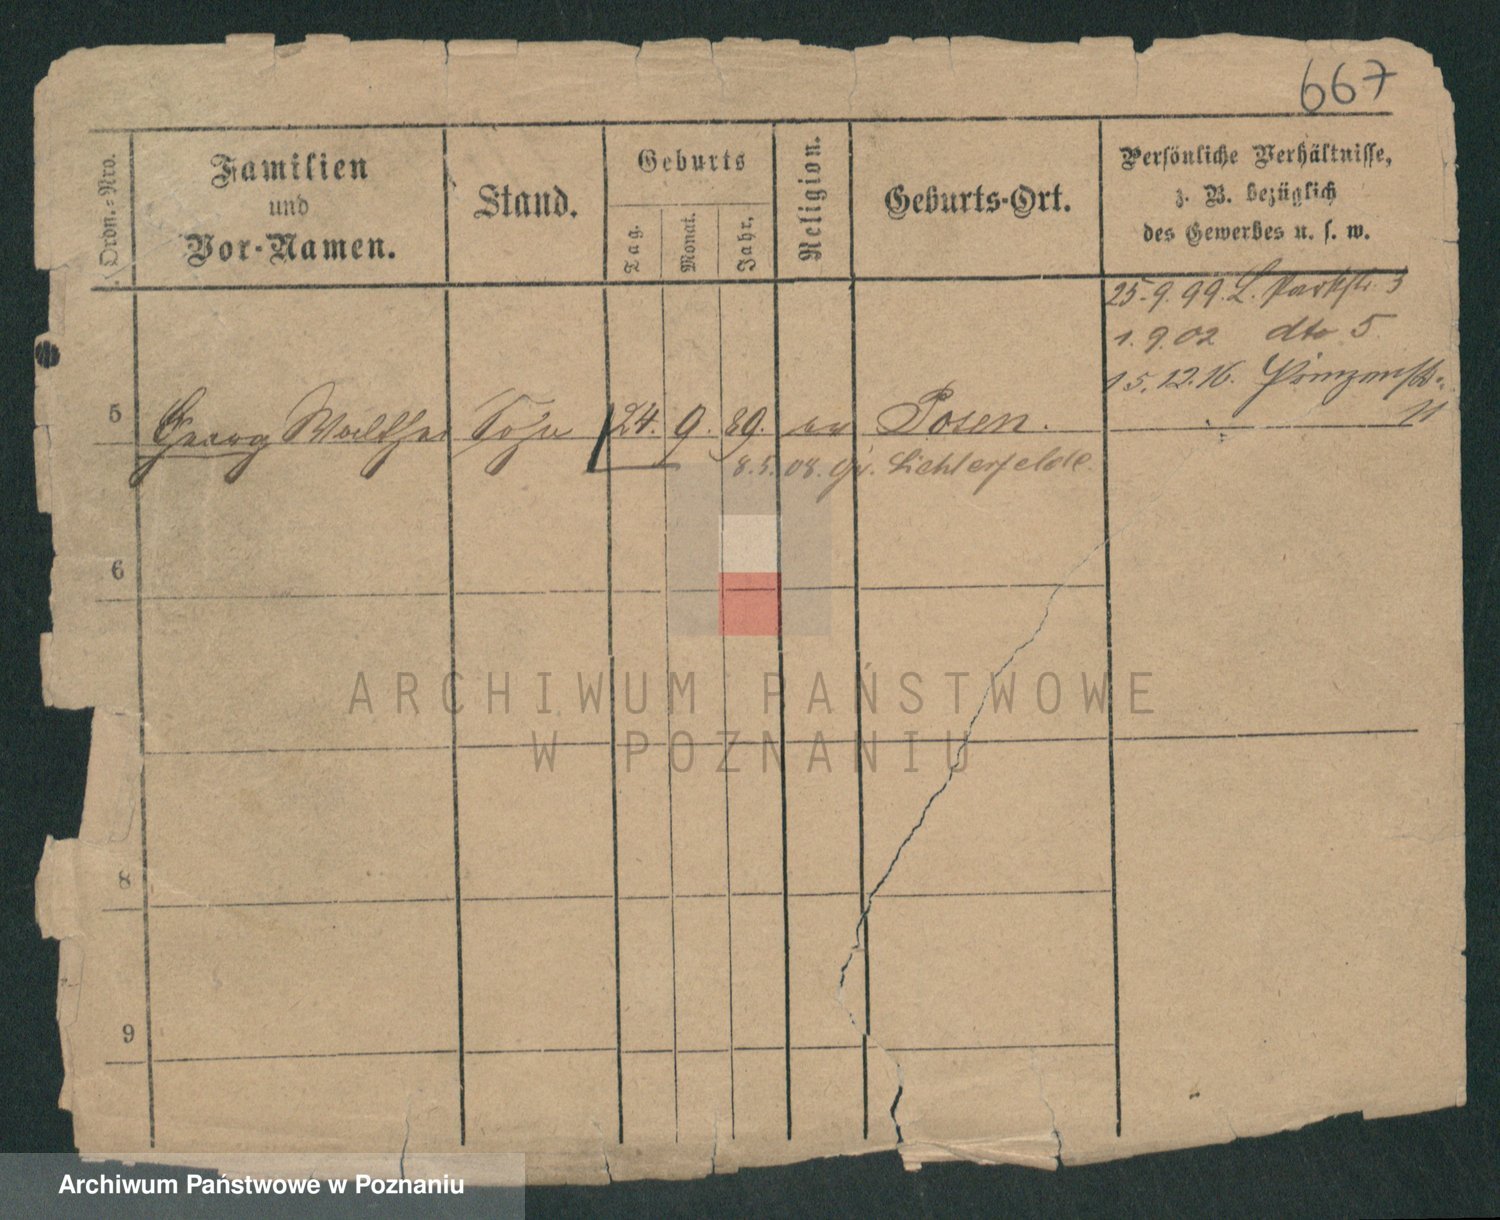 667
Ordn.-Nro.
Familien
und
Vor-Namen.
Stand.
Geburts
Tag.
Monat.
Jahr.
Religion.
Geburts-Ort.
Persönliche Verhältnisse,
z. B. bezüglich
des Gewerbes u. s. w.
25.9.99. L. Parkstr. 3
1.9.02 dto 5.
15.12.16. Prinzenstr.
11
5 Georg Walther Sohn 24. 9. 89. ev Posen.
8.5.08. Gr. Lichterfelde
6
8
9
ARCHIWUM PAŃSTWOWE
W POZNANIU
Archiwum Państwowe w Poznaniu